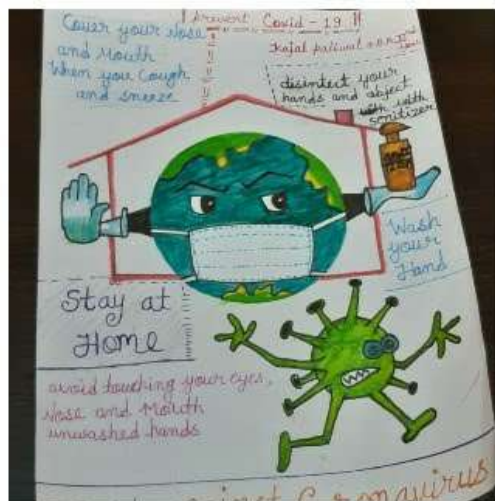 Prevent Covid-19 !!
Cover your Nose
and Mouth
When you Cough
and sneeze
Kajal
disinfect your
hands and object
with sanitizer
Wash
your
Hand
Stay at
Home
avoid touching your eyes,
Nose and Mouth
unwashed hands
Coronavirus